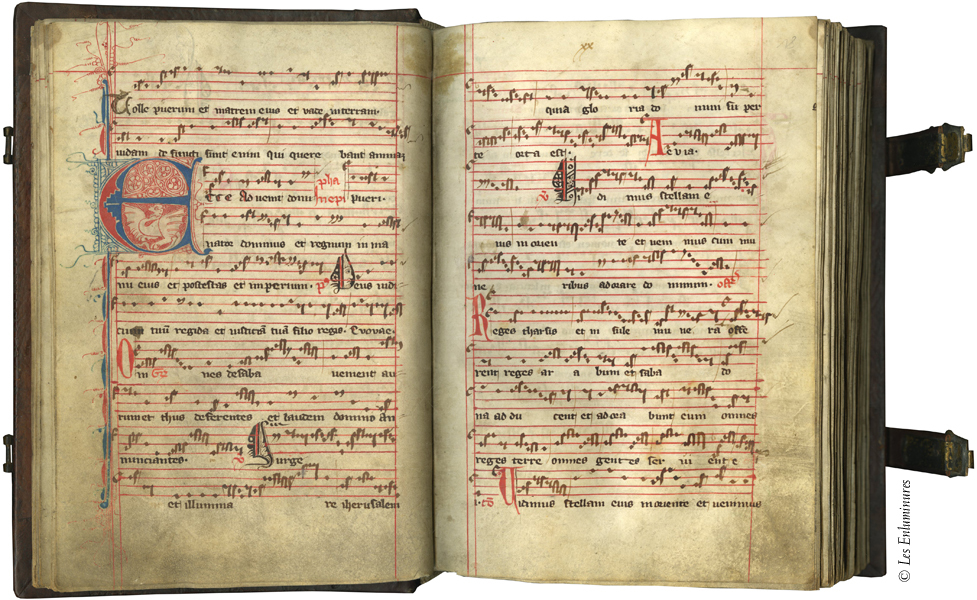 Tolle puerum et matrem eius et vade in terram
iudam defuncti sunt enim qui quere bant animam
Ecce advenit domi
pha
nie pi
pueri
nator dominus et regnum in ma
nu eius et potestas et imperium. ps Deus iudi
cium tuum regi da et iusticiam tuam filio regis. Evovae.
Om Gr. nes de saba venient au
rum et thus deferentes et laudem domino an
nunciantes. V Surge
et illumina re iherusalem
xx
quia glo ria do mini su per
te orta est. A evia.
V Vi di mus stellam e
ius in orien te et veni mus cum mu
ne ribus adorare do minum. offer
Reges tharsis et in sule mu ne ra offe
rent reges ar a bum et saba do
na ad du cent et ado ra bunt eum omnes
reges terre omnes gentes ser vi ent e
i. co Vidimus stellam eius in oriente et venimus
© Les Enluminures